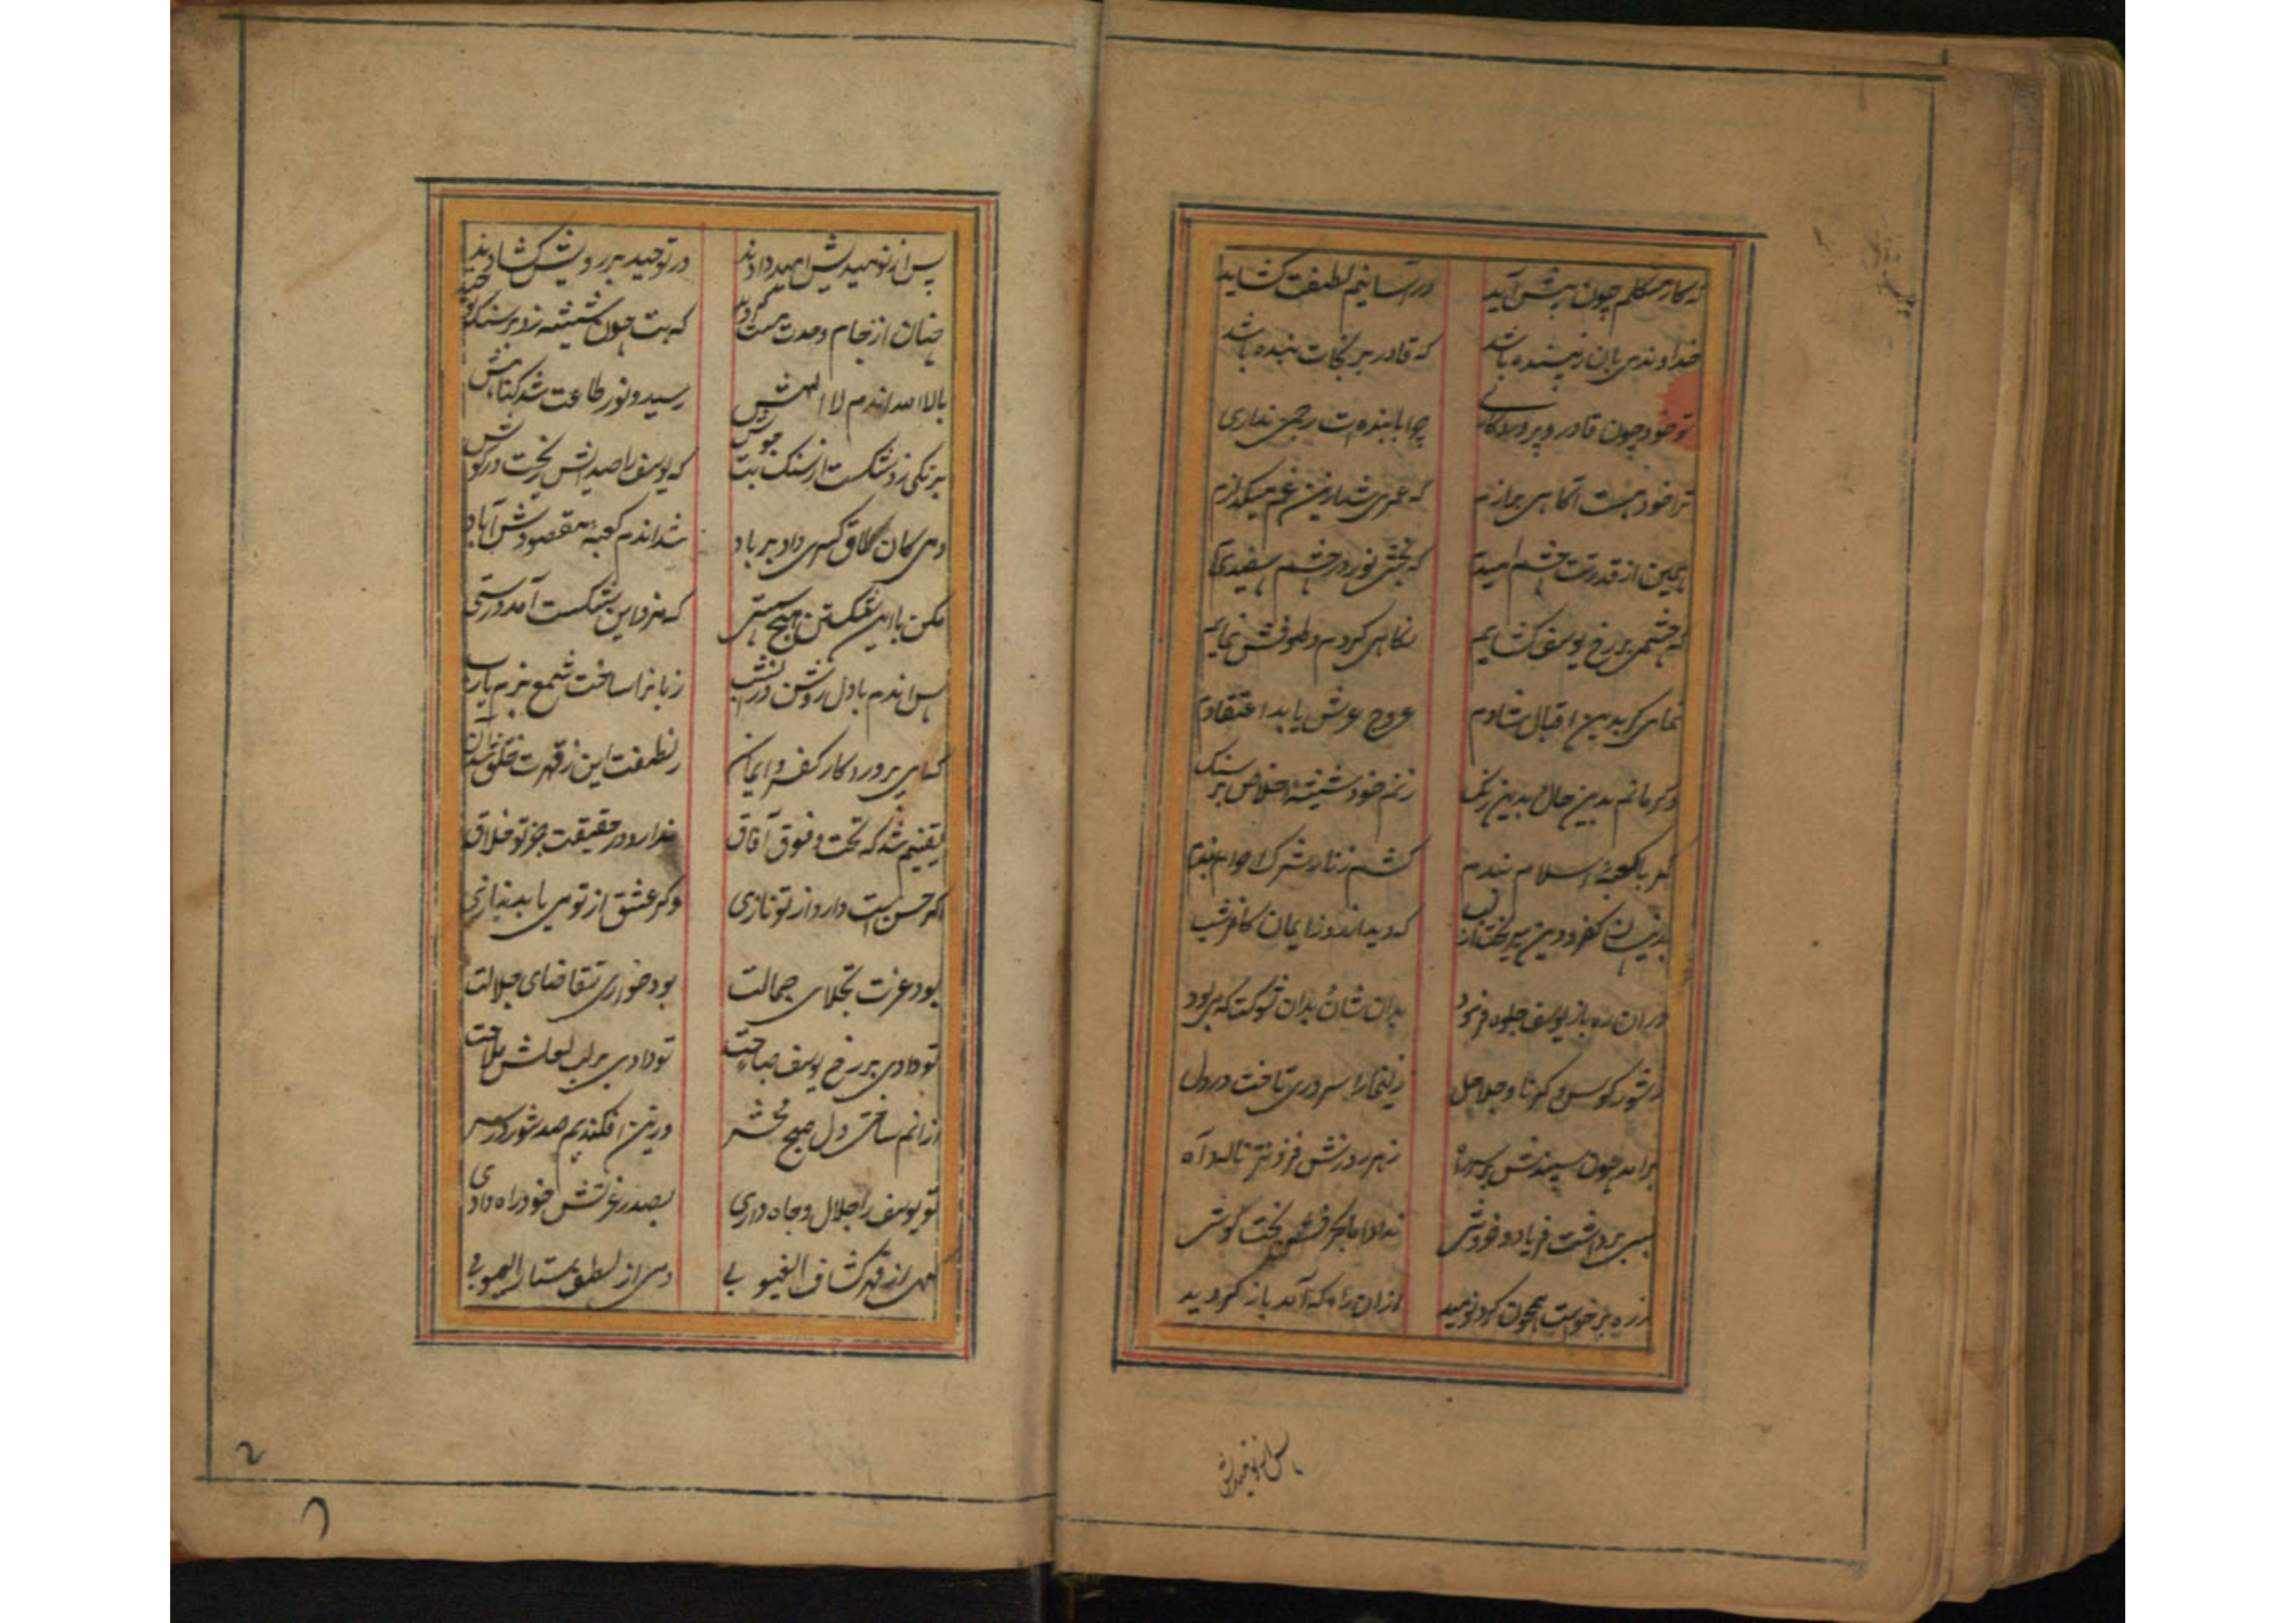 که کار مشکلم چون پیش آید در آسانیم لطفت کشاید
خداوندی بان زیبنده باشد که قادر بر نجات بنده باشد
تو خود چون قادر و پروردکاری چرا با بنده ات رحمی نداری
ترا خود هست آکاهی ز رازم که عمری شد ازین غم میکدازم
همین از قدرتت چشم امیدم که بخشی نور در چشم سفیدم
که چشمی بر رخ یوسف کشایم نکاهی کردم و طوفش نمایم
نمای کر بدین اقبال شادم عروج عرش یابد اعتقادم
وکر مانم بدین حال بدین رنک زنم خود شیشهٔ اخلاص بر سنک
کمر با کعبهٔ اسلام بندم کشم زنار و شرک احرام بندم
بدینسان کفر و دین میریخت از لب که دید افروز ایمان کافر شب
در ان ره باز یوسف جلوه فرمود بدان شان بدان شوکت که می بود
ز شور کوس و کرنا و جلاجل زلیخا را سروری تافت در دل
برامد چون سپندش بر سر راه ز هر روزش فزونتر ناله و آه
بسی برداشت فریاد و خروشی ندادا ما بحرفش بخت کوشی
ز ره برخواست همچون کرد نومید ازان راه که آمد باز کردید
پس از نومیدیش
پس از نومیدیش امید دادند در توحید بر رویش کشادند
چنان از جام وحدت مست کردید که بت چون شیشه زد بر سنک توحید
بالا الله اندم لا الهش رسید و نور طاعت شد کناهش
برنکی زد شکست از سنک بت جوش که یوسف را صدایش ریخت در کوش
دمی کان طاق کسری داد بر باد شد اندم کعبهٔ مقصودش آباد
مکن با این شکستن هیچ سستی که مزد این شکست آمد درستی
پس اندم با دل روشن در انشب زبانرا ساخت شمع بزم یارب
که ای پروردکار کفر و ایمان ز لطفت این ز قهرت خلق شد آن
یقینم شد که تحت و فوق آفاق ندارد در حقیقت جز تو خلاق
اکر حسن است دارد از تو نازی وکر عشق از تو می یابد نیازی
بود عزت تجلای جمالت بود خواری تقاضای جلالت
تو دادی بر رخ یوسف صباحت تو دادی بر لب لعلش ملاحت
ازانم ساختی دل صبح محشر وزین افکندیم صد شور در سر
تو یوسف را جلال و جاه دادی بصدر عزتش خود راه دادی
کهی از قهر کشاف الغیوبی دمی از لطف ستار العیوبی
۲